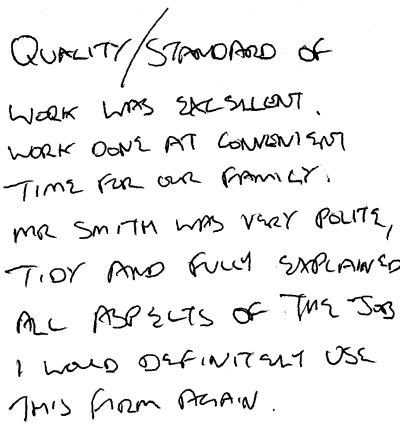 QUALITY/STANDARD OF
WORK WAS EXCELLENT.
WORK DONE AT CONVENIENT
TIME FOR OUR FAMILY.
MR SMITH WAS VERY POLITE,
TIDY AND FULLY EXPLAINED
ALL ASPECTS OF THE JOB
I WOULD DEFINITELY USE
THIS FIRM AGAIN.